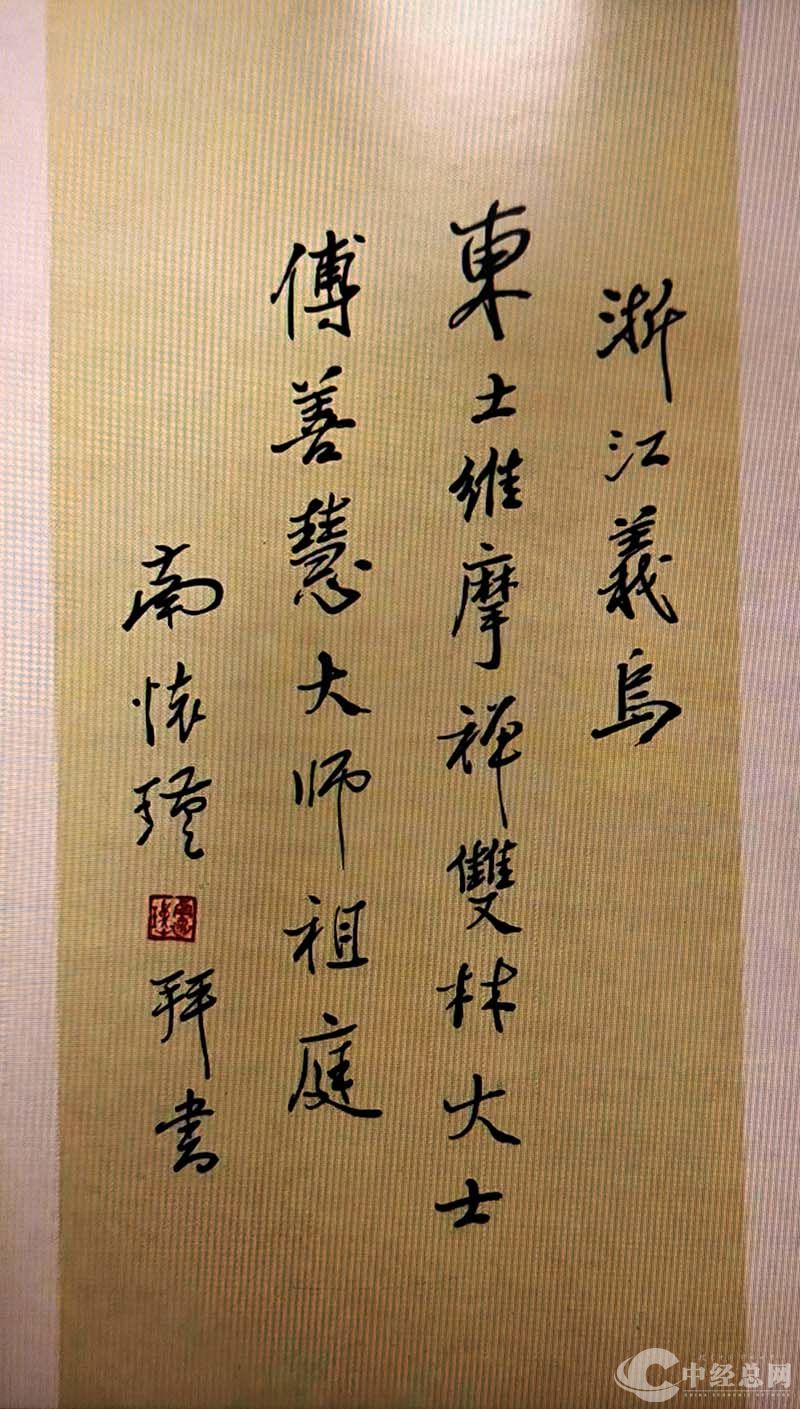 浙江義烏
東土維摩禅雙林大士
傅善慧大师祖庭
南懷瑾
拜書
中经总网
CHINA ECONOMIC NETWORK